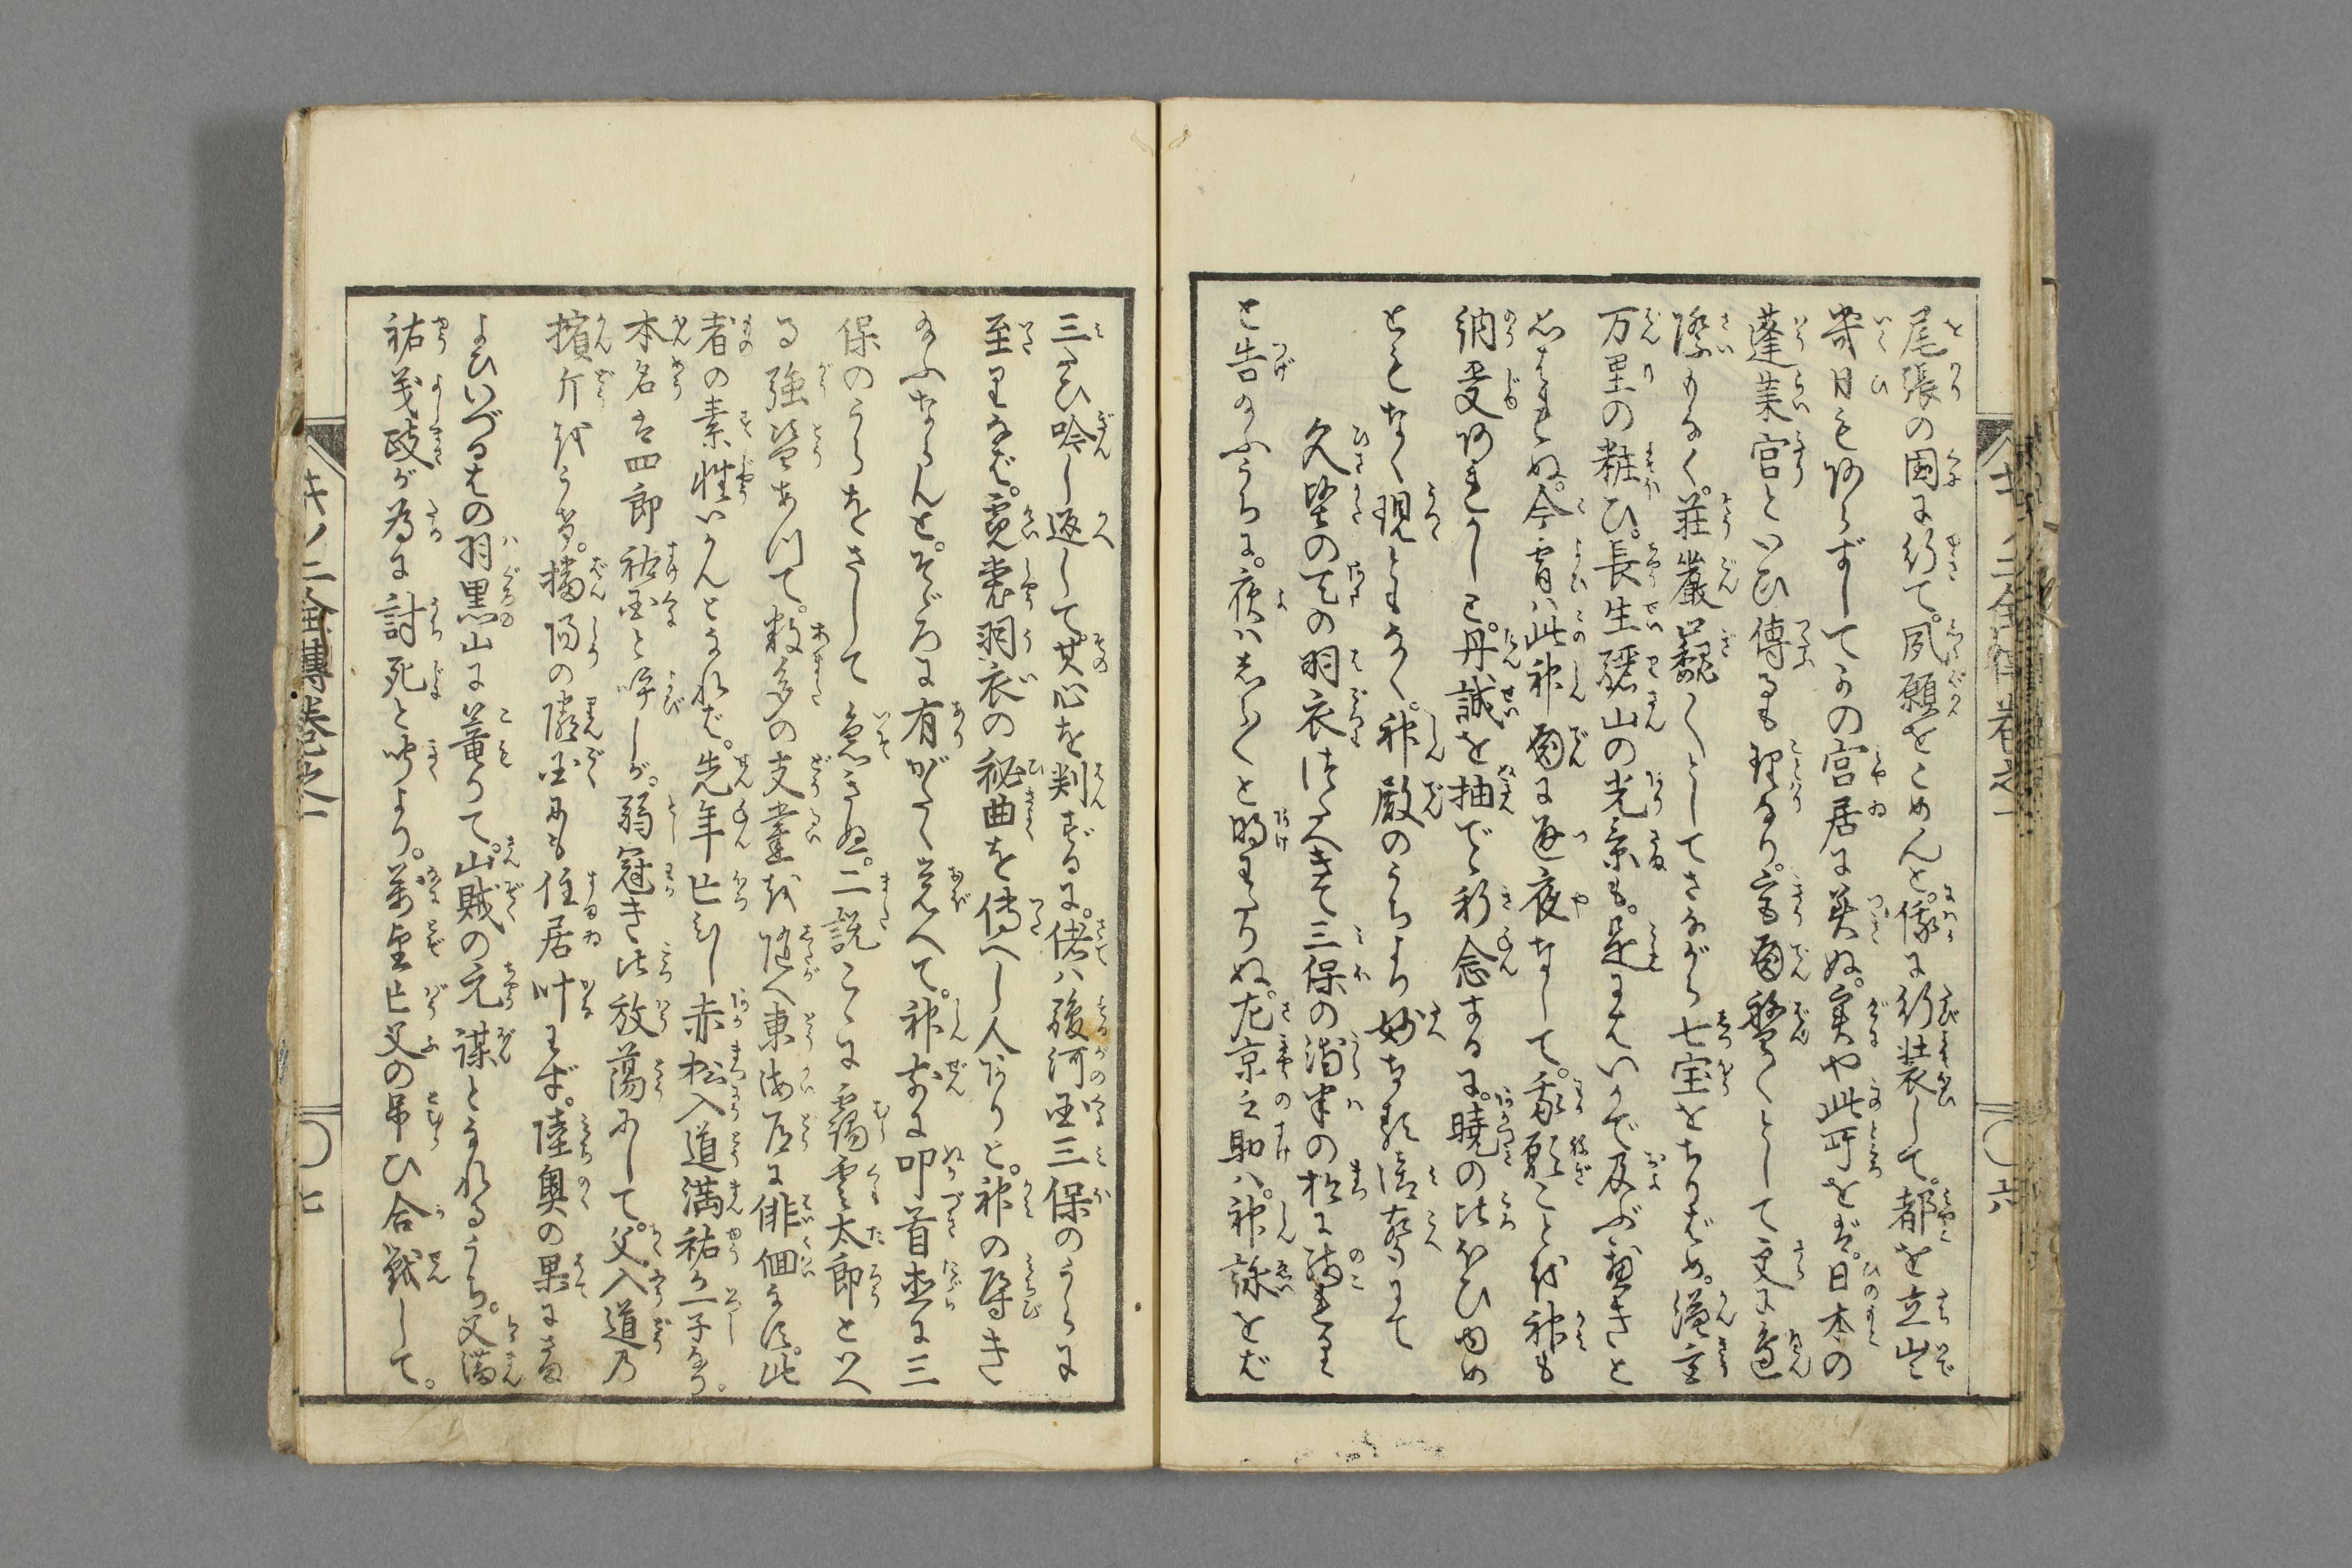 尾張の国に行て。夙願をこめんと。俄に行装して。都を立出て
幾日もあらずしてかの宮居に着ぬ。実や此所をば。日本の
蓬莱宮といひ傳るも理なり。宮殿盤々として更に邊
際もなく。荘厳巍々としてさながら七宝をちりばめ。漢宮
万里の粧ひ。長生驪山の光景も。是にはいかで及ぶべきと
思はれぬ。今宵は此神前に通夜なして。我願ことを神も
納受あれかしと。丹誠を抽で祈念する に。暁の比ほひゆめ
ともなく現ともなく。神殿のうちより妙なる御声にて
久堅の天の羽衣たへきて三保の浦半の松に残れる
と告給ふうちに。夜はしら〳〵と明わたりぬ。左京之助は。神詠をば
三たび吟し返して。其心を判ずるに。偖は駿河国三保のうらに
至りなば。霓裳羽衣の秘曲を傳へし人ありと。神の導き
給ふならんと。そゞろに有がたく覚へて。神前に叩首直に三
保のうらをさして急きぬ。二説こゝに靄雲太郎といへ
る強盗あつて。数多の支黨を随へ東海道に俳徊なす。此
者の素性いかんとなれば。先年亡びし赤松入道満祐の一子なり。
本名は四郎祐国と呼しが。弱冠き比放蕩にして。父入道の
擯斥をうけ。播陽の隣国にも住居叶はず。陸奥の果にさま
よひいづるはの羽黒山に篭りて。山賊の元謀となれるうち。父満
祐義政が為に討死と聞より。等亡父の弔ひ合戦して。
キノ二全傳巻之一
六
キノ二全傳巻之一
七